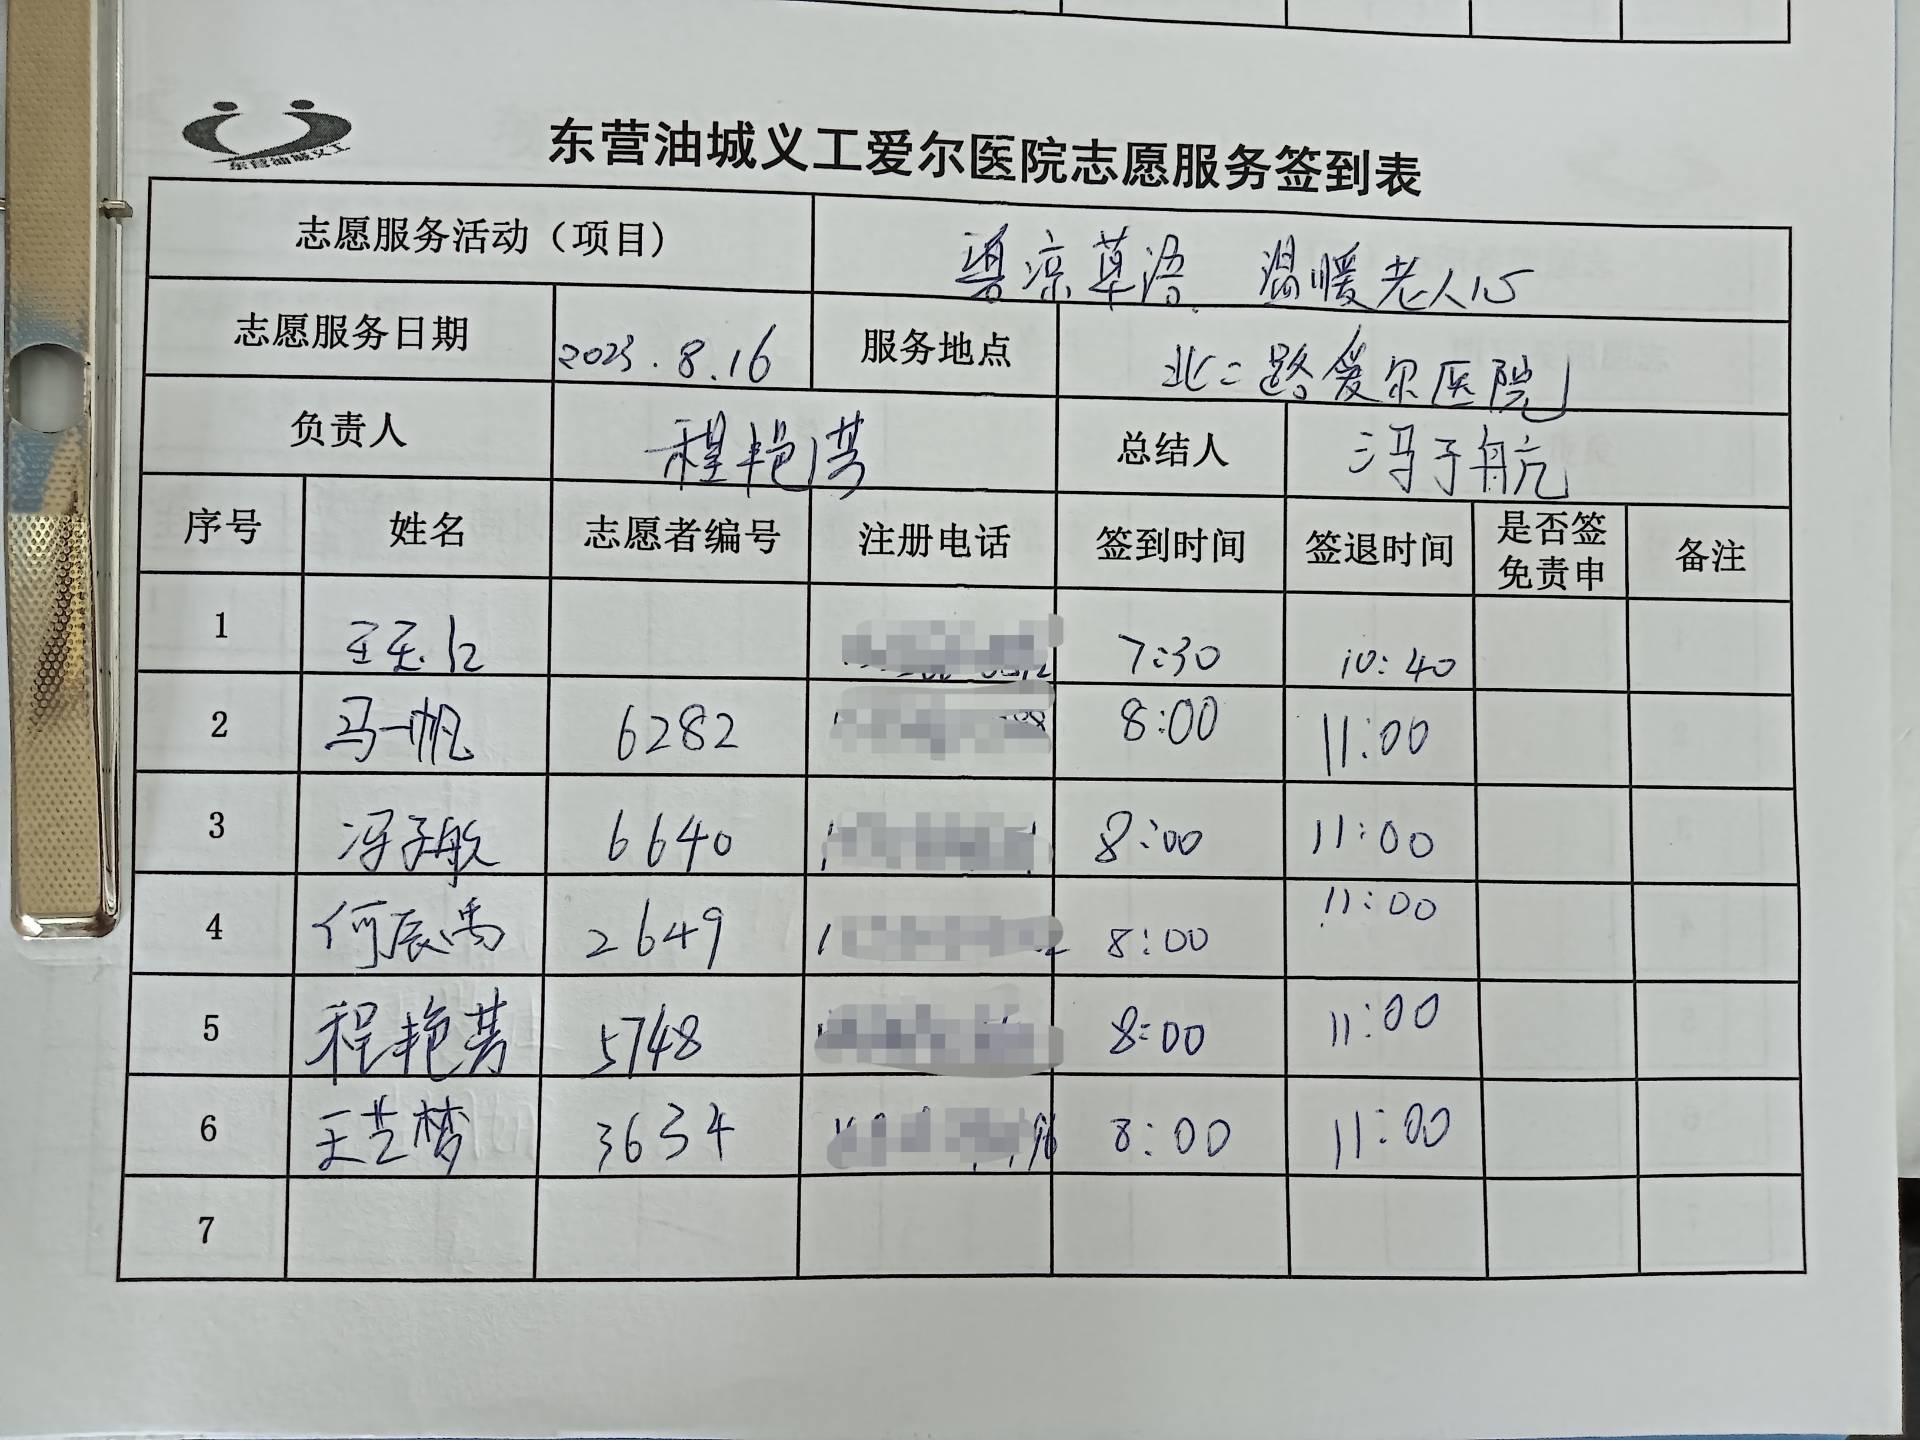 东营油城义工
东营油城义工爱尔医院志愿服务签到表
志愿服务活动（项目） 凉草语 温暖老人心
志愿服务日期 2023.8.16 服务地点 北二路爱尔医院
负责人 程艳芳 总结人 冯子航
序号 姓名 志愿者编号 注册电话 签到时间 签退时间 是否签免责申 备注
1 7:30 10:40
2 马一帆 6282 8:00 11:00
3 冯子航 6640 8:00 11:00
4 何辰禹 2649 8:00 11:00
5 程艳芳 5748 8:00 11:00
6 王艺梦 3634 8:00 11:00
7